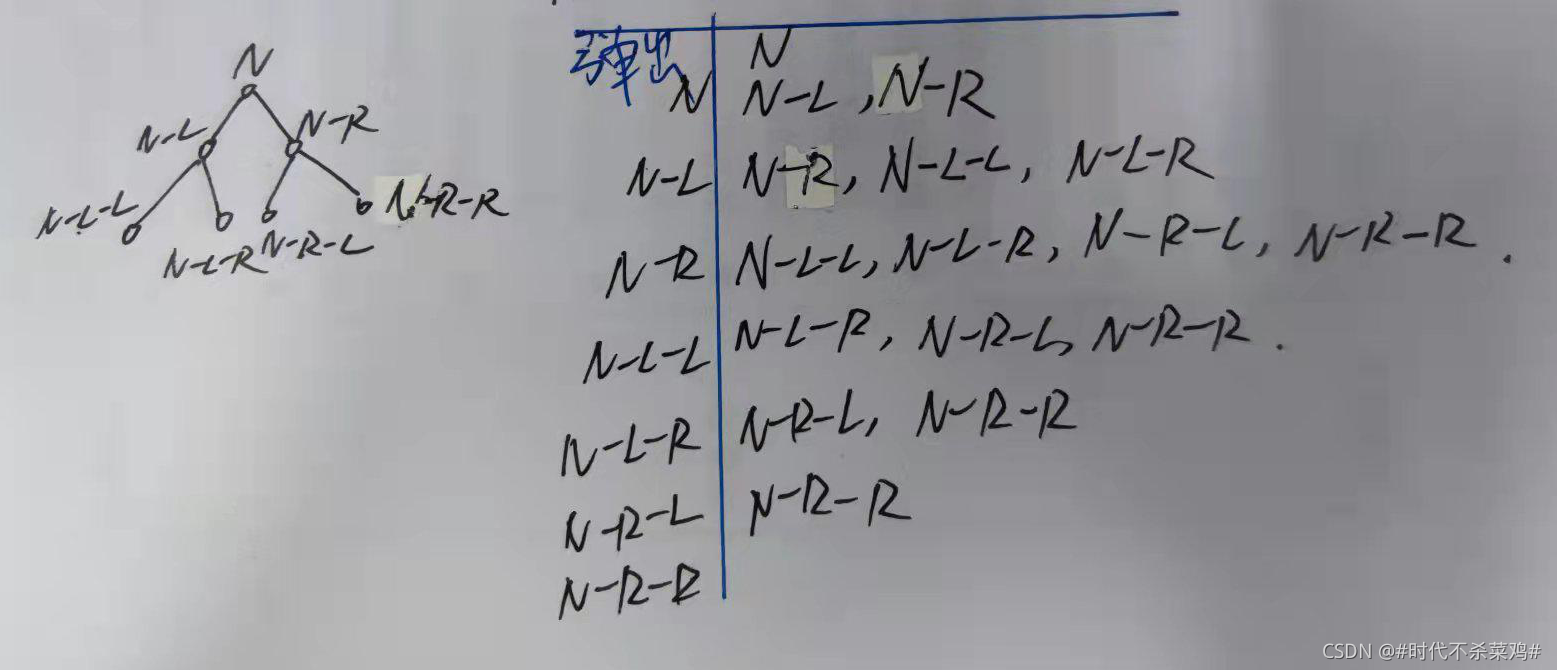 N
N-L N-R
N-L-L N-R-R
N-L-R N-R-L
弹出 N
N N-L , N-R
N-L N-R, N-L-L, N-L-R
N-R N-L-L, N-L-R, N-R-L, N-R-R .
N-L-L N-L-R, N-R-L, N-R-R .
N-L-R N-R-L, N-R-R
N-R-L N-R-R
N-R-R
CSDN @#时代不杀菜鸡#